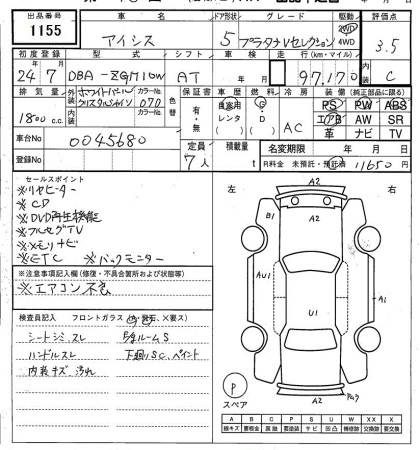 出品番号 車名 ドア形状 グレード 駆動 評価点
1155 アイシス 5 プラタナVセレクション 2WD 4WD 3.5
初度登録 型式 シフト 車検 走行(km・マイル) 内装
24年7月 DBA-ZGM10W AT 年 月 97,170 C
排気量 外装 ホワイトパール クリスタルシャイン カラーNo. 070 色替 保証書 車歴 燃料 冷房 装備(純正部品に限る)
1800 c.c. 内装 カラーNo. 有・無 自家用 レンタ G・D AC PS PW ABS
エアB AW SR
革 ナビ TV
車台No 0045680 定員 7人 積載量 t 名変期限 年 月 日
登録No R料金 未預託・預託済 11650 円
セールスポイント
※リヤヒーター
※CD
※DVD再生機能
※フルセグTV
※メモリナビ
※ETC ※バックモニター
※注意事項記入欄(修復・不具合箇所および状態等)
※エアコン不良
検査員記入 フロントガラス
シートシミ、スレ
ハンドルスレ 下廻りSC、ペイント
内装キズ 汚れ
左 右
A2
A2
B1
AU1
U1
A1
A2
P
スペア
A B C P S U W X XX
線キズ 要板金 腐蝕 要塗装 サビ 凹凸 補修跡 交換跡 要交換